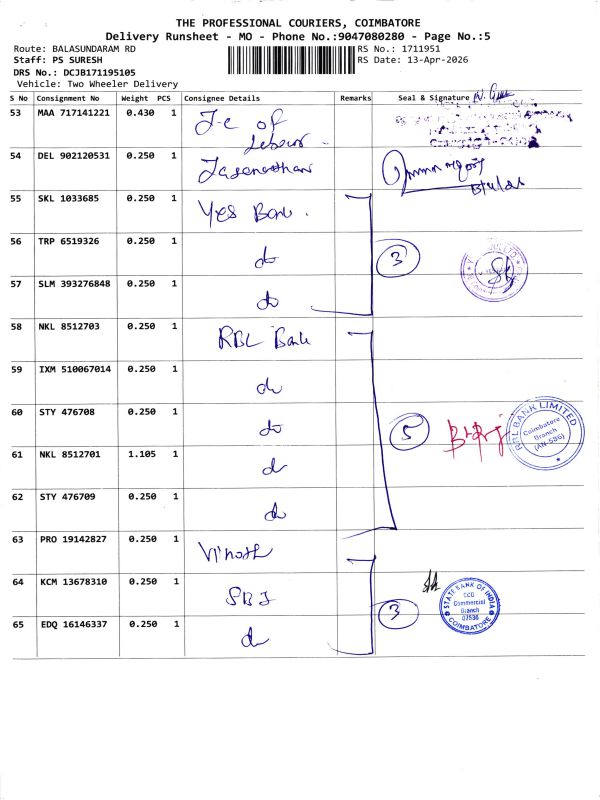 THE PROFESSIONAL COURIERS, COIMBATORE
Delivery Runsheet - MO - Phone No.:9047080280 - Page No.:5
Route: BALASUNDARAM RD
RS No.: 1711951
Staff: PS SURESH
RS Date: 13-Apr-2026
DRS No.: DCJB171195105
Vehicle: Two Wheeler Delivery
S No Consignment No Weight PCS Consignee Details Remarks Seal & Signature
53 MAA 717141221 0.430 1 J-C of Labour
54 DEL 902120531 0.250 1
55 SKL 1033685 0.250 1 Yes Bank.
56 TRP 6519326 0.250 1 do 3
57 SLM 393276848 0.250 1 do
58 NKL 8512703 0.250 1 RBL Bank
59 IXM 510067014 0.250 1 do
60 STY 476708 0.250 1 do 5 RBL BANK LIMITED Coimbatore Branch (AN-596)
61 NKL 8512701 1.105 1 do
62 STY 476709 0.250 1 do
63 PRO 19142827 0.250 1 Vinoth
64 KCM 13678310 0.250 1 SBI 3 STATE BANK OF INDIA CCG Commercial Branch 07536 COIMBATORE
65 EDQ 16146337 0.250 1 do